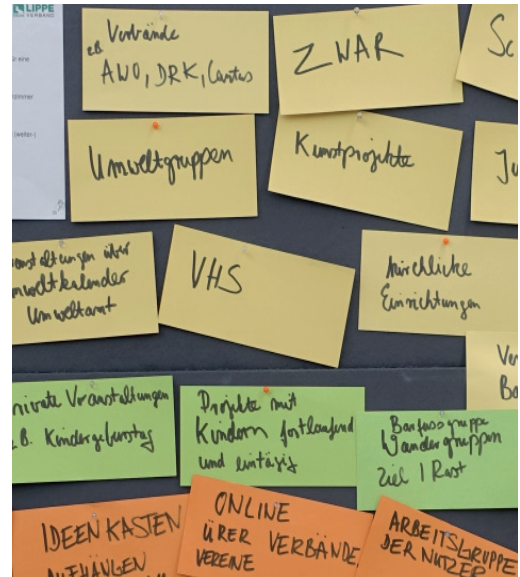 LIPPE
VERBAND
für eine
zimmer
(weiter-)
z.B. Verbände
AWO, DRK, Caritas
ZWAR
Sc
Umweltgruppen
Kunstprojekte
Ju
anstaltungen über
mweltkalender
Umweltamt
VHS
kirchliche
Einrichtungen
Ver
Ba
rivate Veranstaltungen
z.B. Kindergeburtstag
Projekte mit
Kindern fortlaufend
und eintägig
Barfussgruppe
Wandergruppen
Ziel / Rast
IDEEN KASTEN
AUFHÄNGEN
ONLINE
ÜBER VERBÄNDE
VEREINE
ARBEITSGRUPPE
DER NUTZER